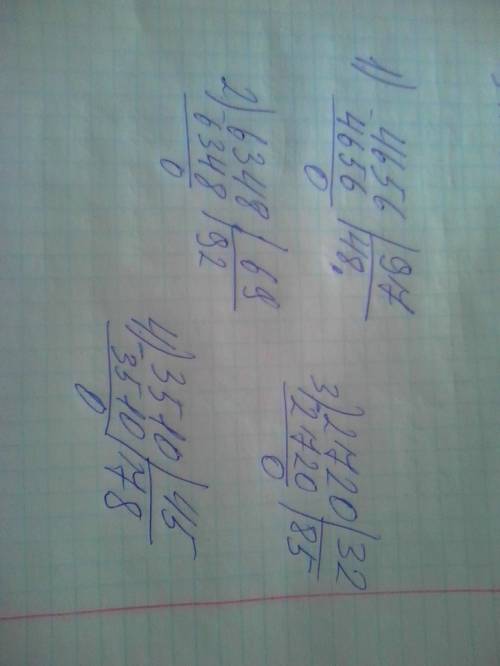 1) 4656 | 97
- 4656 | 48
0
2) 6348 | 69
- 6348 | 92
0
3) 2720 | 32
- 2720 | 85
0
4) 3510 | 45
- 3510 | 78
0